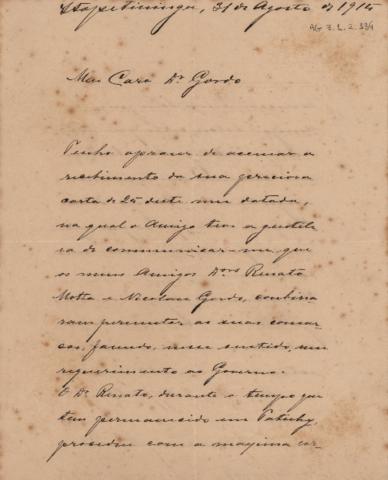 Itapetininga, 31 de Agosto de 1914
AG 3.1.2.334
Meu Caro Dr Gordo
Tenho o prazer de accusar o
recebimento da sua preciosa
carta de 25 deste mez datada,
na qual o Amigo teve a gentile
za de communicar-me que
os meus Amigos Drs Renato
Motta e Nicolau Gordo, combina
ram permutar as suas comar
cas, fazendo, nesse sentido, um
requerimento ao Governo.
O Dr Renato, durante o tempo que
tem permanecido em Tatuhy,
procedeu com a maxima cor-